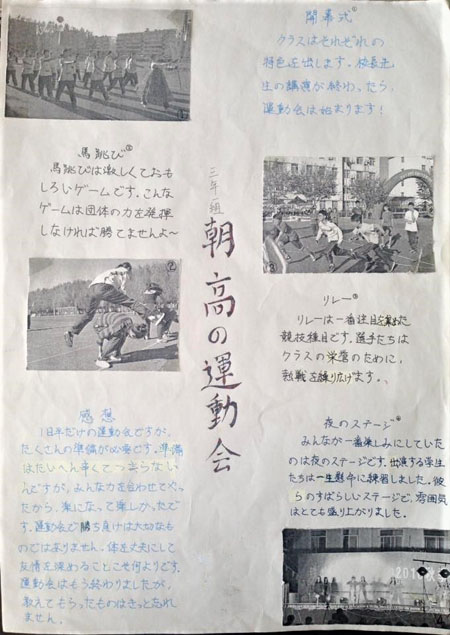 開幕式①
クラスはそれぞれの
特色を出します。校長先
生の講演が終わったら、
運動会は始まります！
馬跳び②
馬跳びは激しくておも
しろいゲームです。こんな
ゲームは団体の力を発揮
しなければ勝てませんよ〜
三年一組
朝高の運動会
リレー③
リレーは一番注目を集めた
競技種目です。選手たちは
クラスの栄誉のために、
熱戦を繰り広げます。
夜のステージ④
みんなが一番楽しみにしていた
のは夜のステージです。出演する学生
たちは一生懸命に練習しました。彼
らのすばらしいステージで、雰囲気
はとても盛り上がりました。
感想
1日半だけの運動会ですが、
たくさんの準備が必要です。準備
はたいへん辛くてつまらない
んですが、みんな力を合わせてやっ
たから、楽になって楽しかったで
す。運動会で勝ち負けは大切なも
のではありません。体を丈夫にして
友情を深めることこそ何よりです。
運動会はもう終わりましたが、
教えてもらったものはきっと忘れ
ません。
①
②
3
4